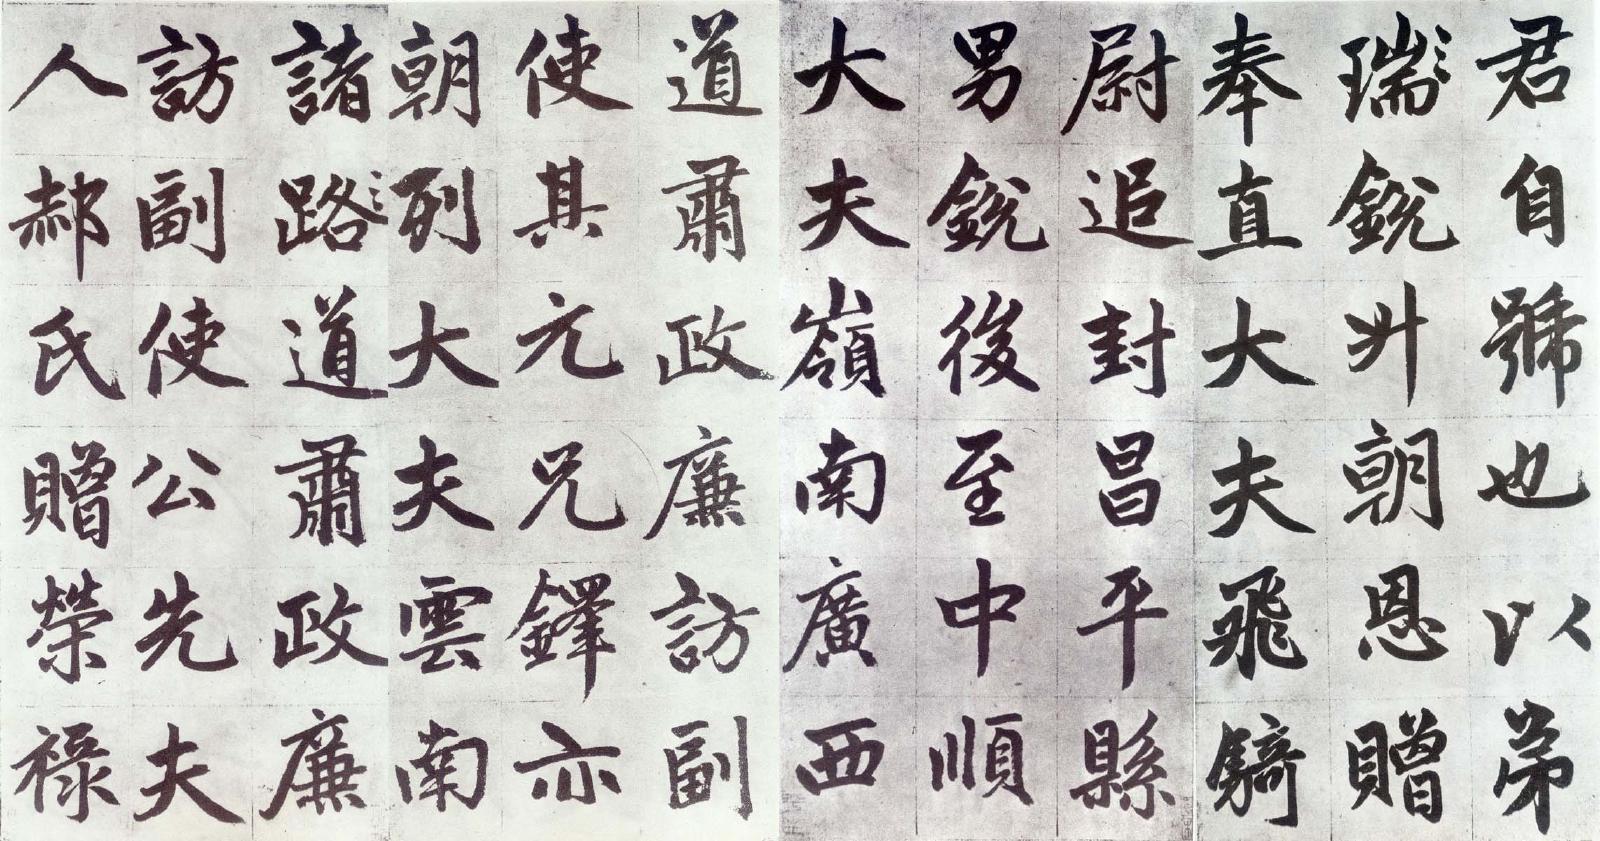 君自號也以弟
瑞銳升朝恩贈
奉直大夫飛騎
尉追封昌平縣
男銳後至中順
大夫嶺南廣西
道肅政廉訪副
使其元兄鐸亦
朝列大夫雲南
諸路道肅政廉
訪副使公先夫
人郝氏贈榮祿